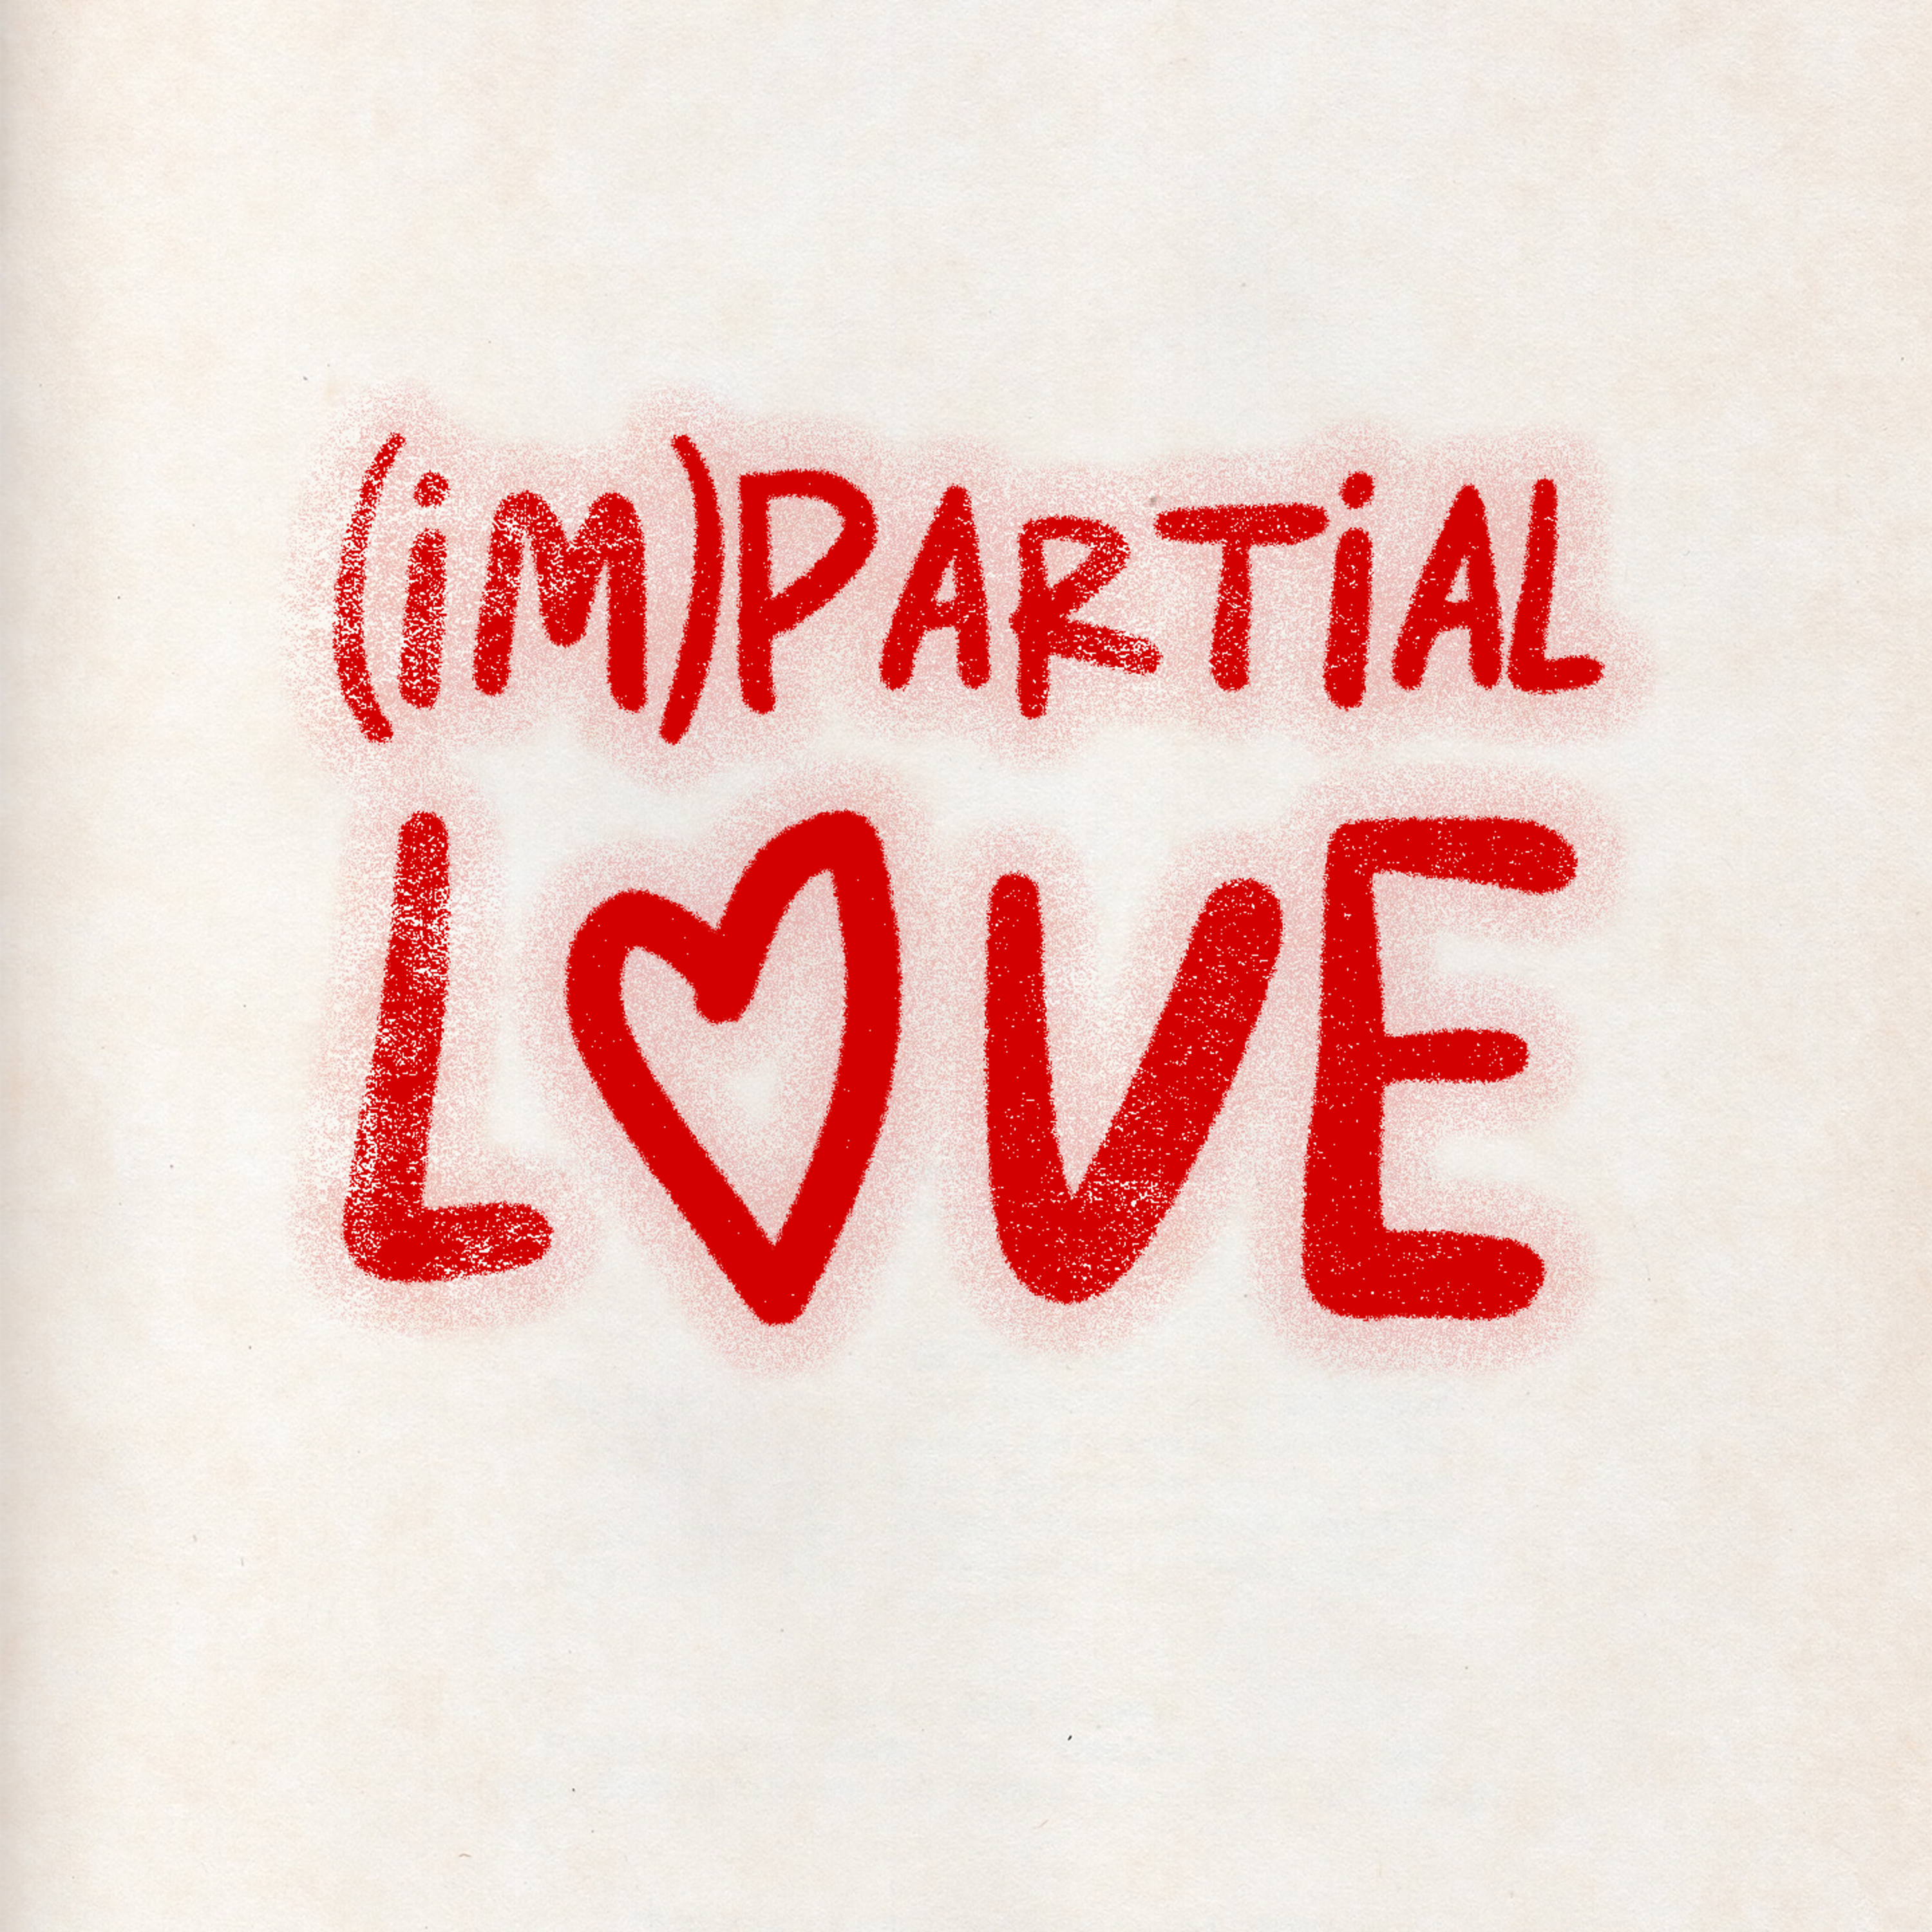 (iM)PARTiAL
LOVE